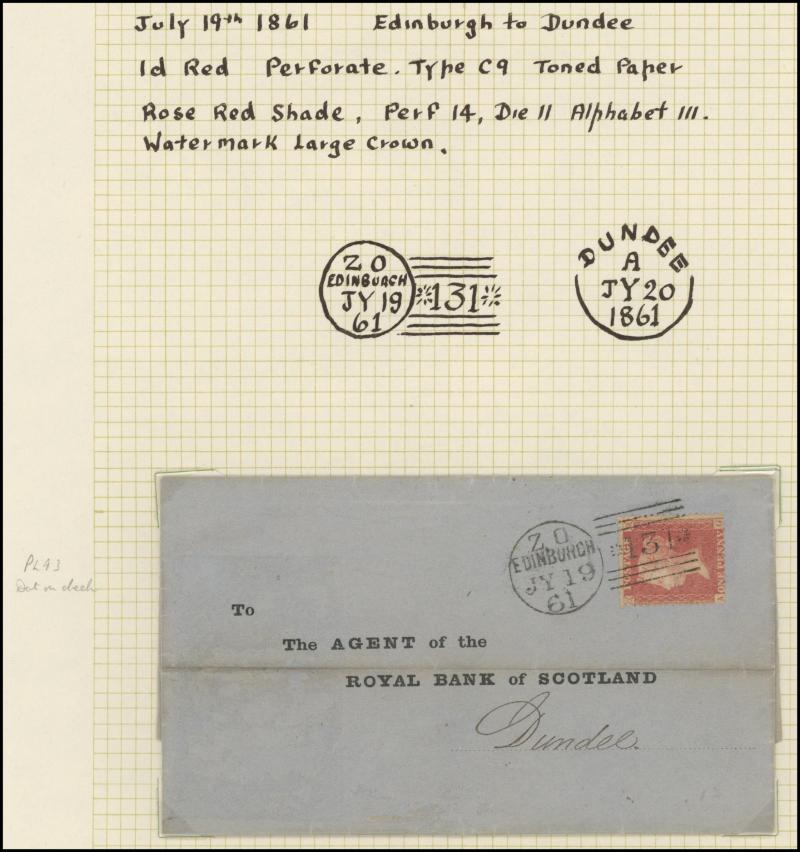 July 19th 1861 Edinburgh to Dundee
1d Red Perforate. Type C9 Toned Paper
Rose Red Shade, Perf 14, Die II Alphabet III.
Watermark Large Crown.
ZO
EDINBURGH
JY 19
61
131
DUNDEE
A
JY 20
1861
ZO
EDINBURGH
JY 19
61
131
PL43
Dot on cheek
To
The AGENT of the
ROYAL BANK of SCOTLAND
Dundee.